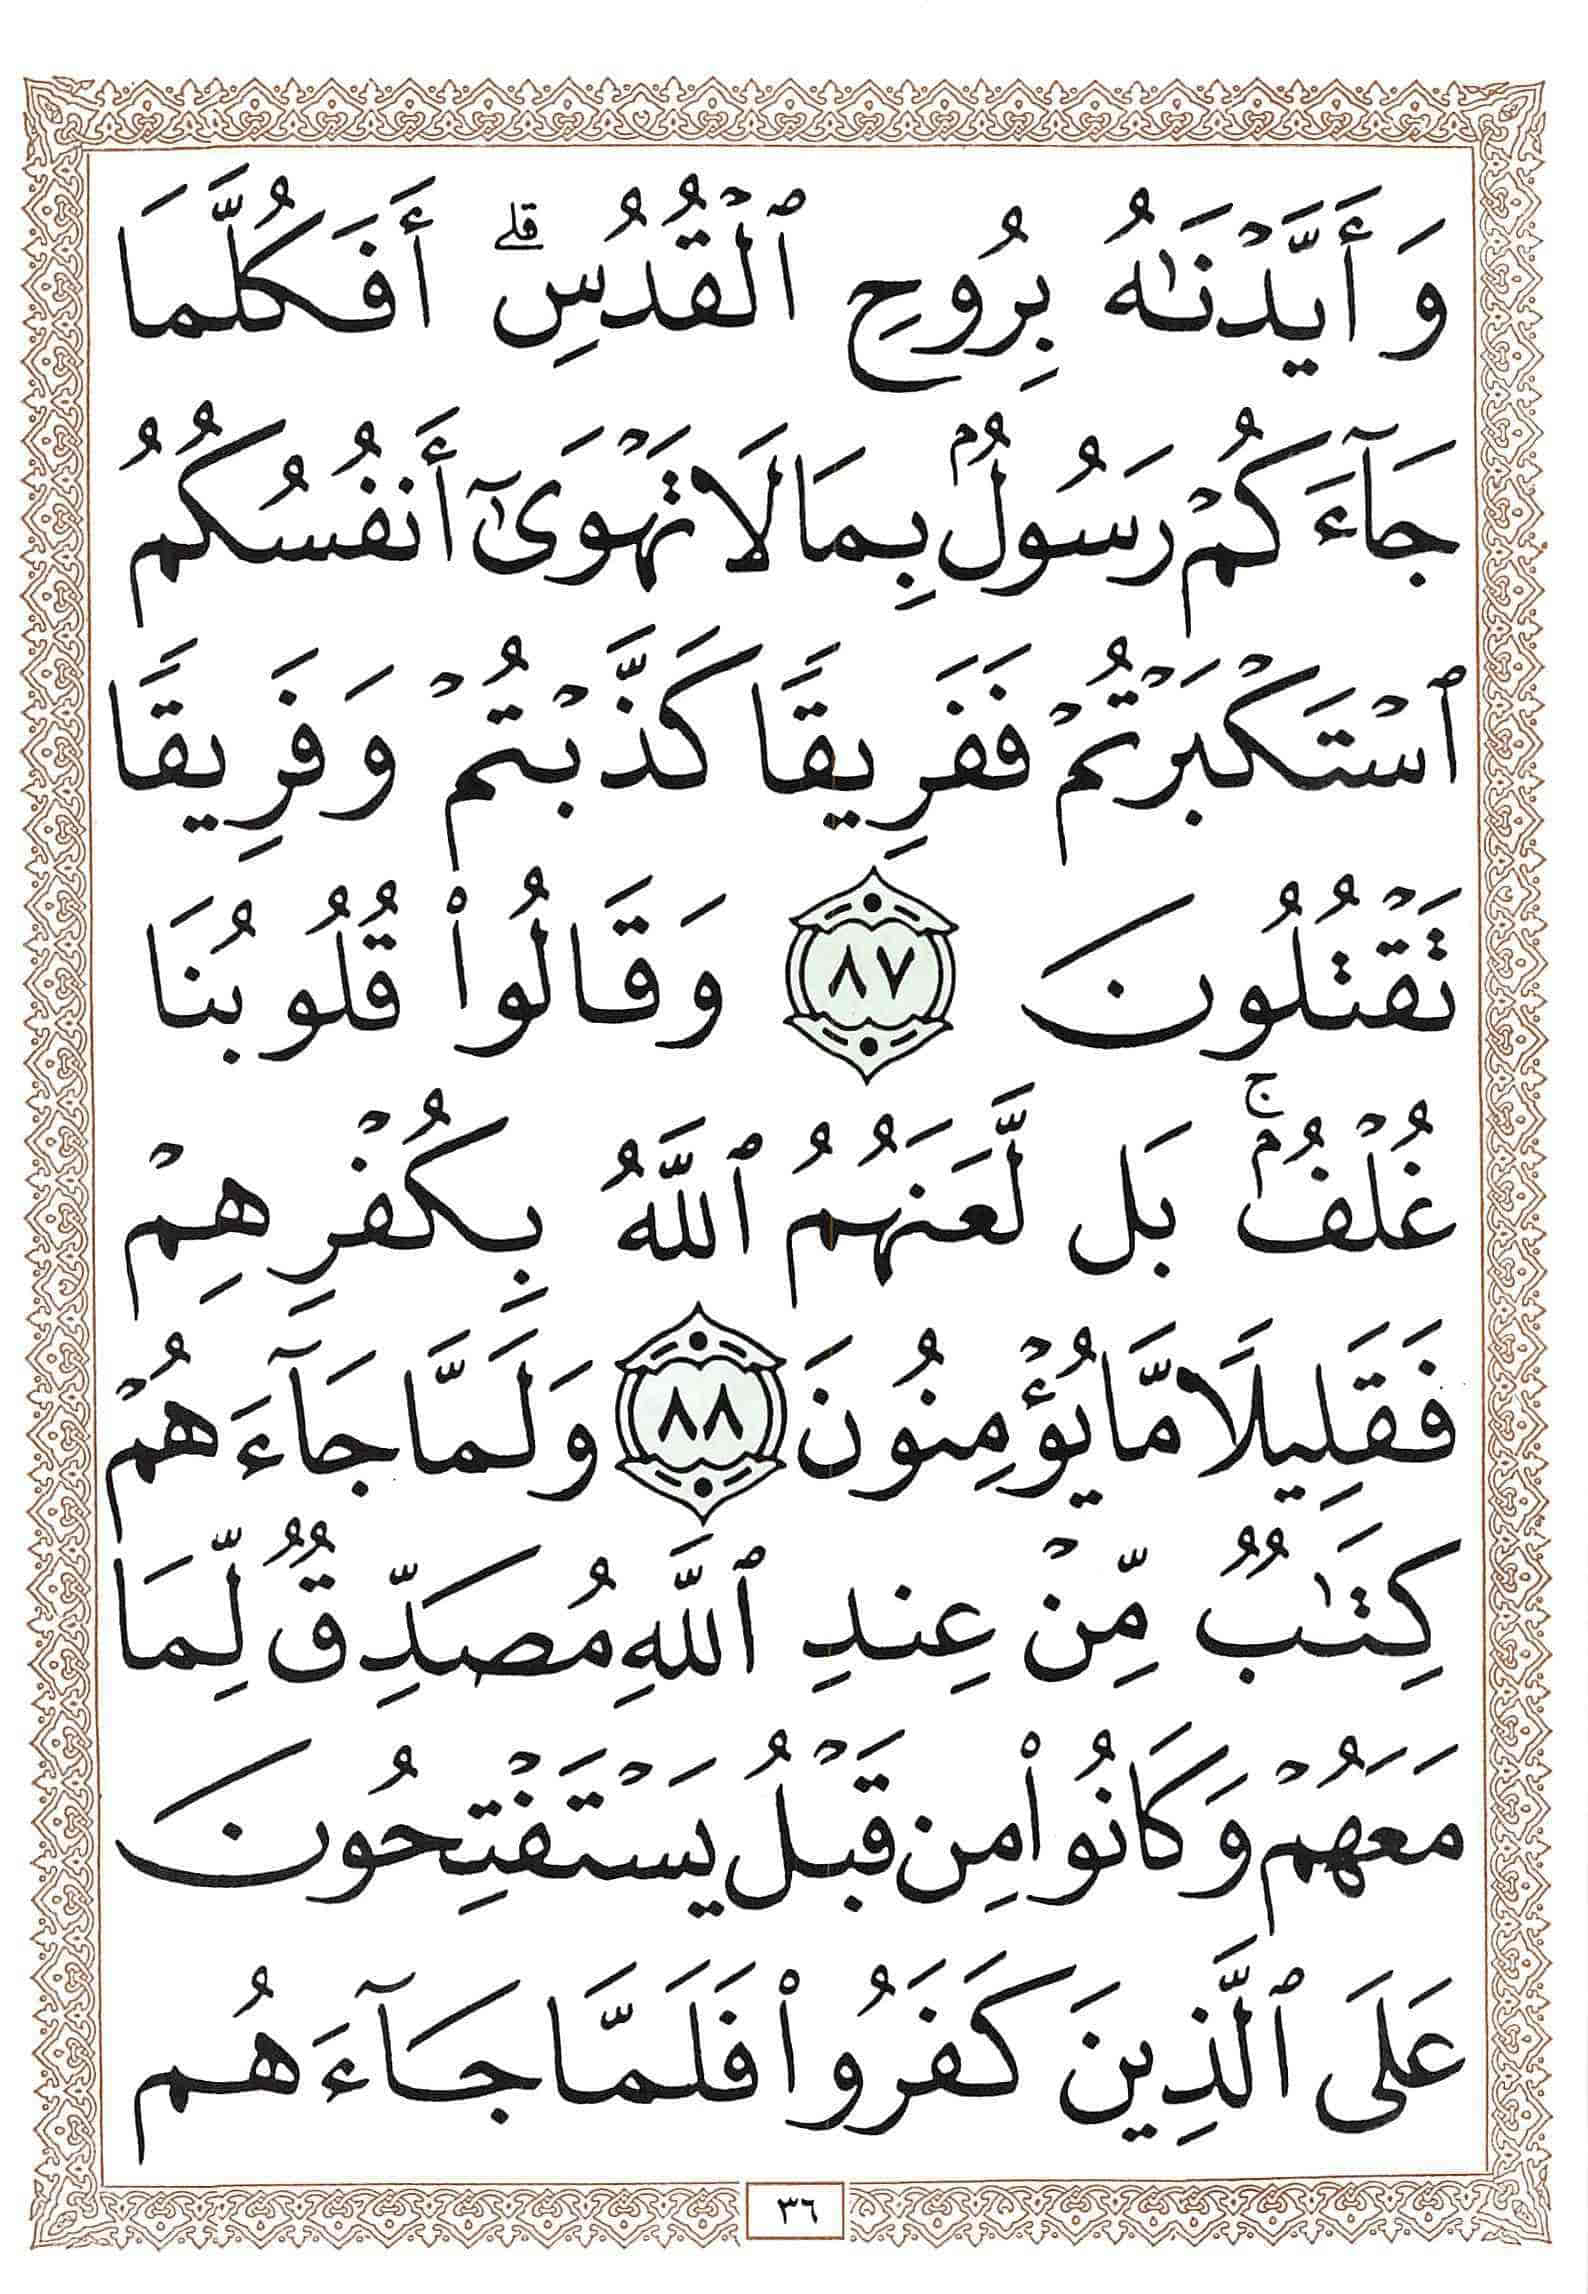 وَأَيَّدْنَٰهُ بِرُوحِ ٱلْقُدُسِ ۗ أَفَكُلَّمَا
جَآءَكُمْ رَسُولٌۢ بِمَا لَا تَهْوَىٰٓ أَنفُسُكُمُ
ٱسْتَكْبَرْتُمْ فَفَرِيقًا كَذَّبْتُمْ وَفَرِيقًا
تَقْتُلُونَ ٨٧ وَقَالُوا۟ قُلُوبُنَا
غُلْفٌۢ ۚ بَل لَّعَنَهُمُ ٱللَّهُ بِكُفْرِهِمْ
فَقَلِيلًا مَّا يُؤْمِنُونَ ٨٨ وَلَمَّا جَآءَهُمْ
كِتَٰبٌ مِّنْ عِندِ ٱللَّهِ مُصَدِّقٌ لِّمَا
مَعَهُمْ وَكَانُوا۟ مِن قَبْلُ يَسْتَفْتِحُونَ
عَلَى ٱلَّذِينَ كَفَرُوا۟ فَلَمَّا جَآءَهُم
٣٦